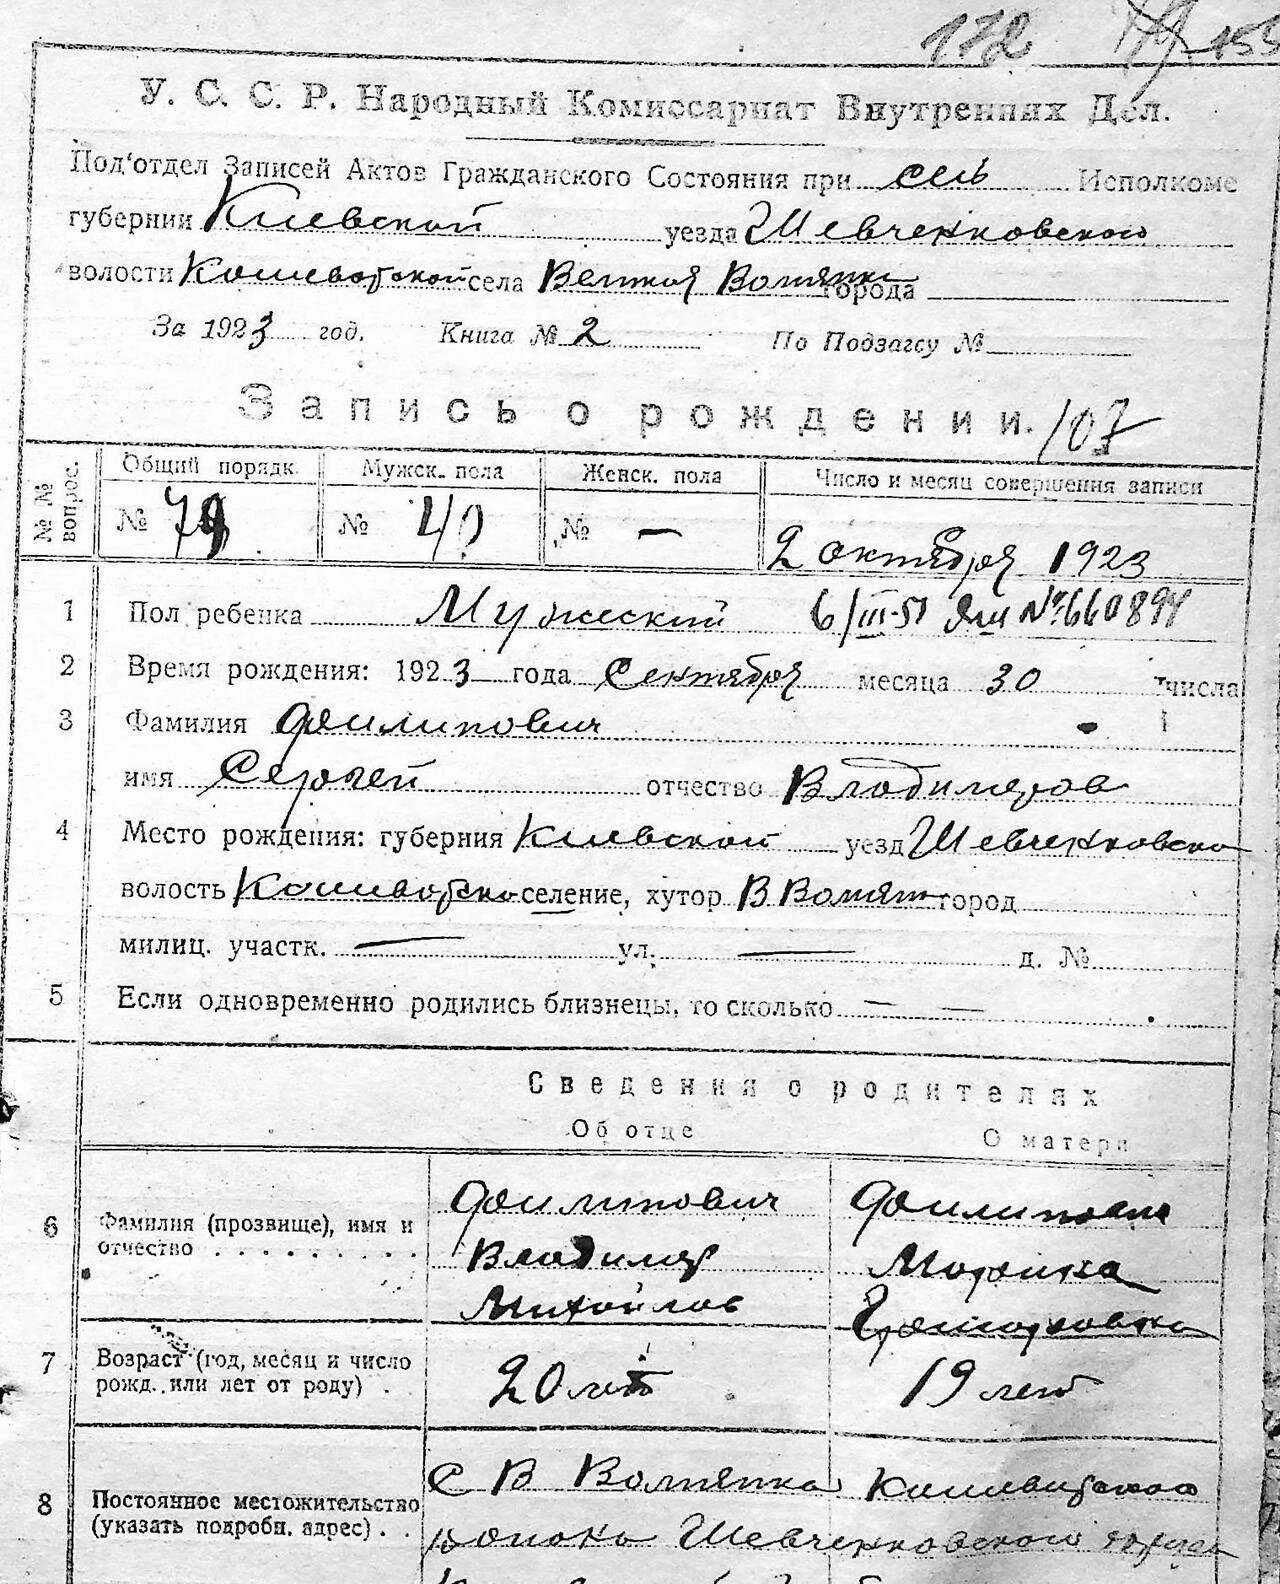 172 155
У. С. С. Р. Народный Комиссариат Внутренних Дел.
Под'отдел Записей Актов Гражданского Состояния при сель Исполкоме
губернии Киевской уезда Шевченковского
волости Кошеватской села Великая Вотянка города
За 1923 год. Книга № 2 По Подзагсу №
Запись о рождении. 107
№ № вопрос. Общий порядк. Мужск. пола Женск. пола Число и месяц совершения записи
№ 79 № 40 № — 2 октября 1923
1 Пол ребенка Мужеский 6/III-51 ЯЩ № 660894
2 Время рождения: 1923 года Сентября месяца 30 числа
3 Фамилия Филипович
имя Сергей отчество Владимиров
4 Место рождения: губерния Киевской уезд Шевченковско
волость Кошеватско селение, хутор В Вотян город
милиц. участк. — ул. — д. №
5 Если одновременно родились близнецы, то сколько — —
Сведения о родителях
Об отце О матери
6 Фамилия (прозвище), имя и отчество Филипович Владимир Михайлов Филипович Марина
7 Возраст (год, месяц и число рожд. или лет от роду) 20 лет 19 лет
8 Постоянное местожительство (указать подробн. адрес) С В Вотянка Кошеватского
района Шевченковского